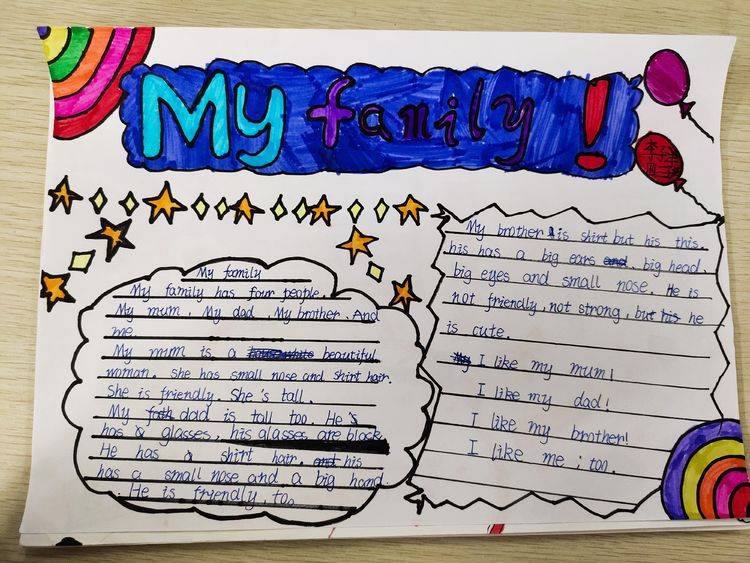 My family !
My family
My family has four people.
My mum . My dad . My brother . And
me.
My mum is a beautiful
woman. she has small nose and shirt hair.
She is friendly. She's tall.
My dad is tall too. He's
has a glasses. his glasses are black
He has a shirt hair. his
has a small nose and a big hand
He is friendly. too
My brother is shirt but his this.
his has a big ears big head.
big eyes and small nose. He is
not friendly, not strong, but he
is cute.
I like my mum!
I like my dad!
I like my brother!
I like me ; too.